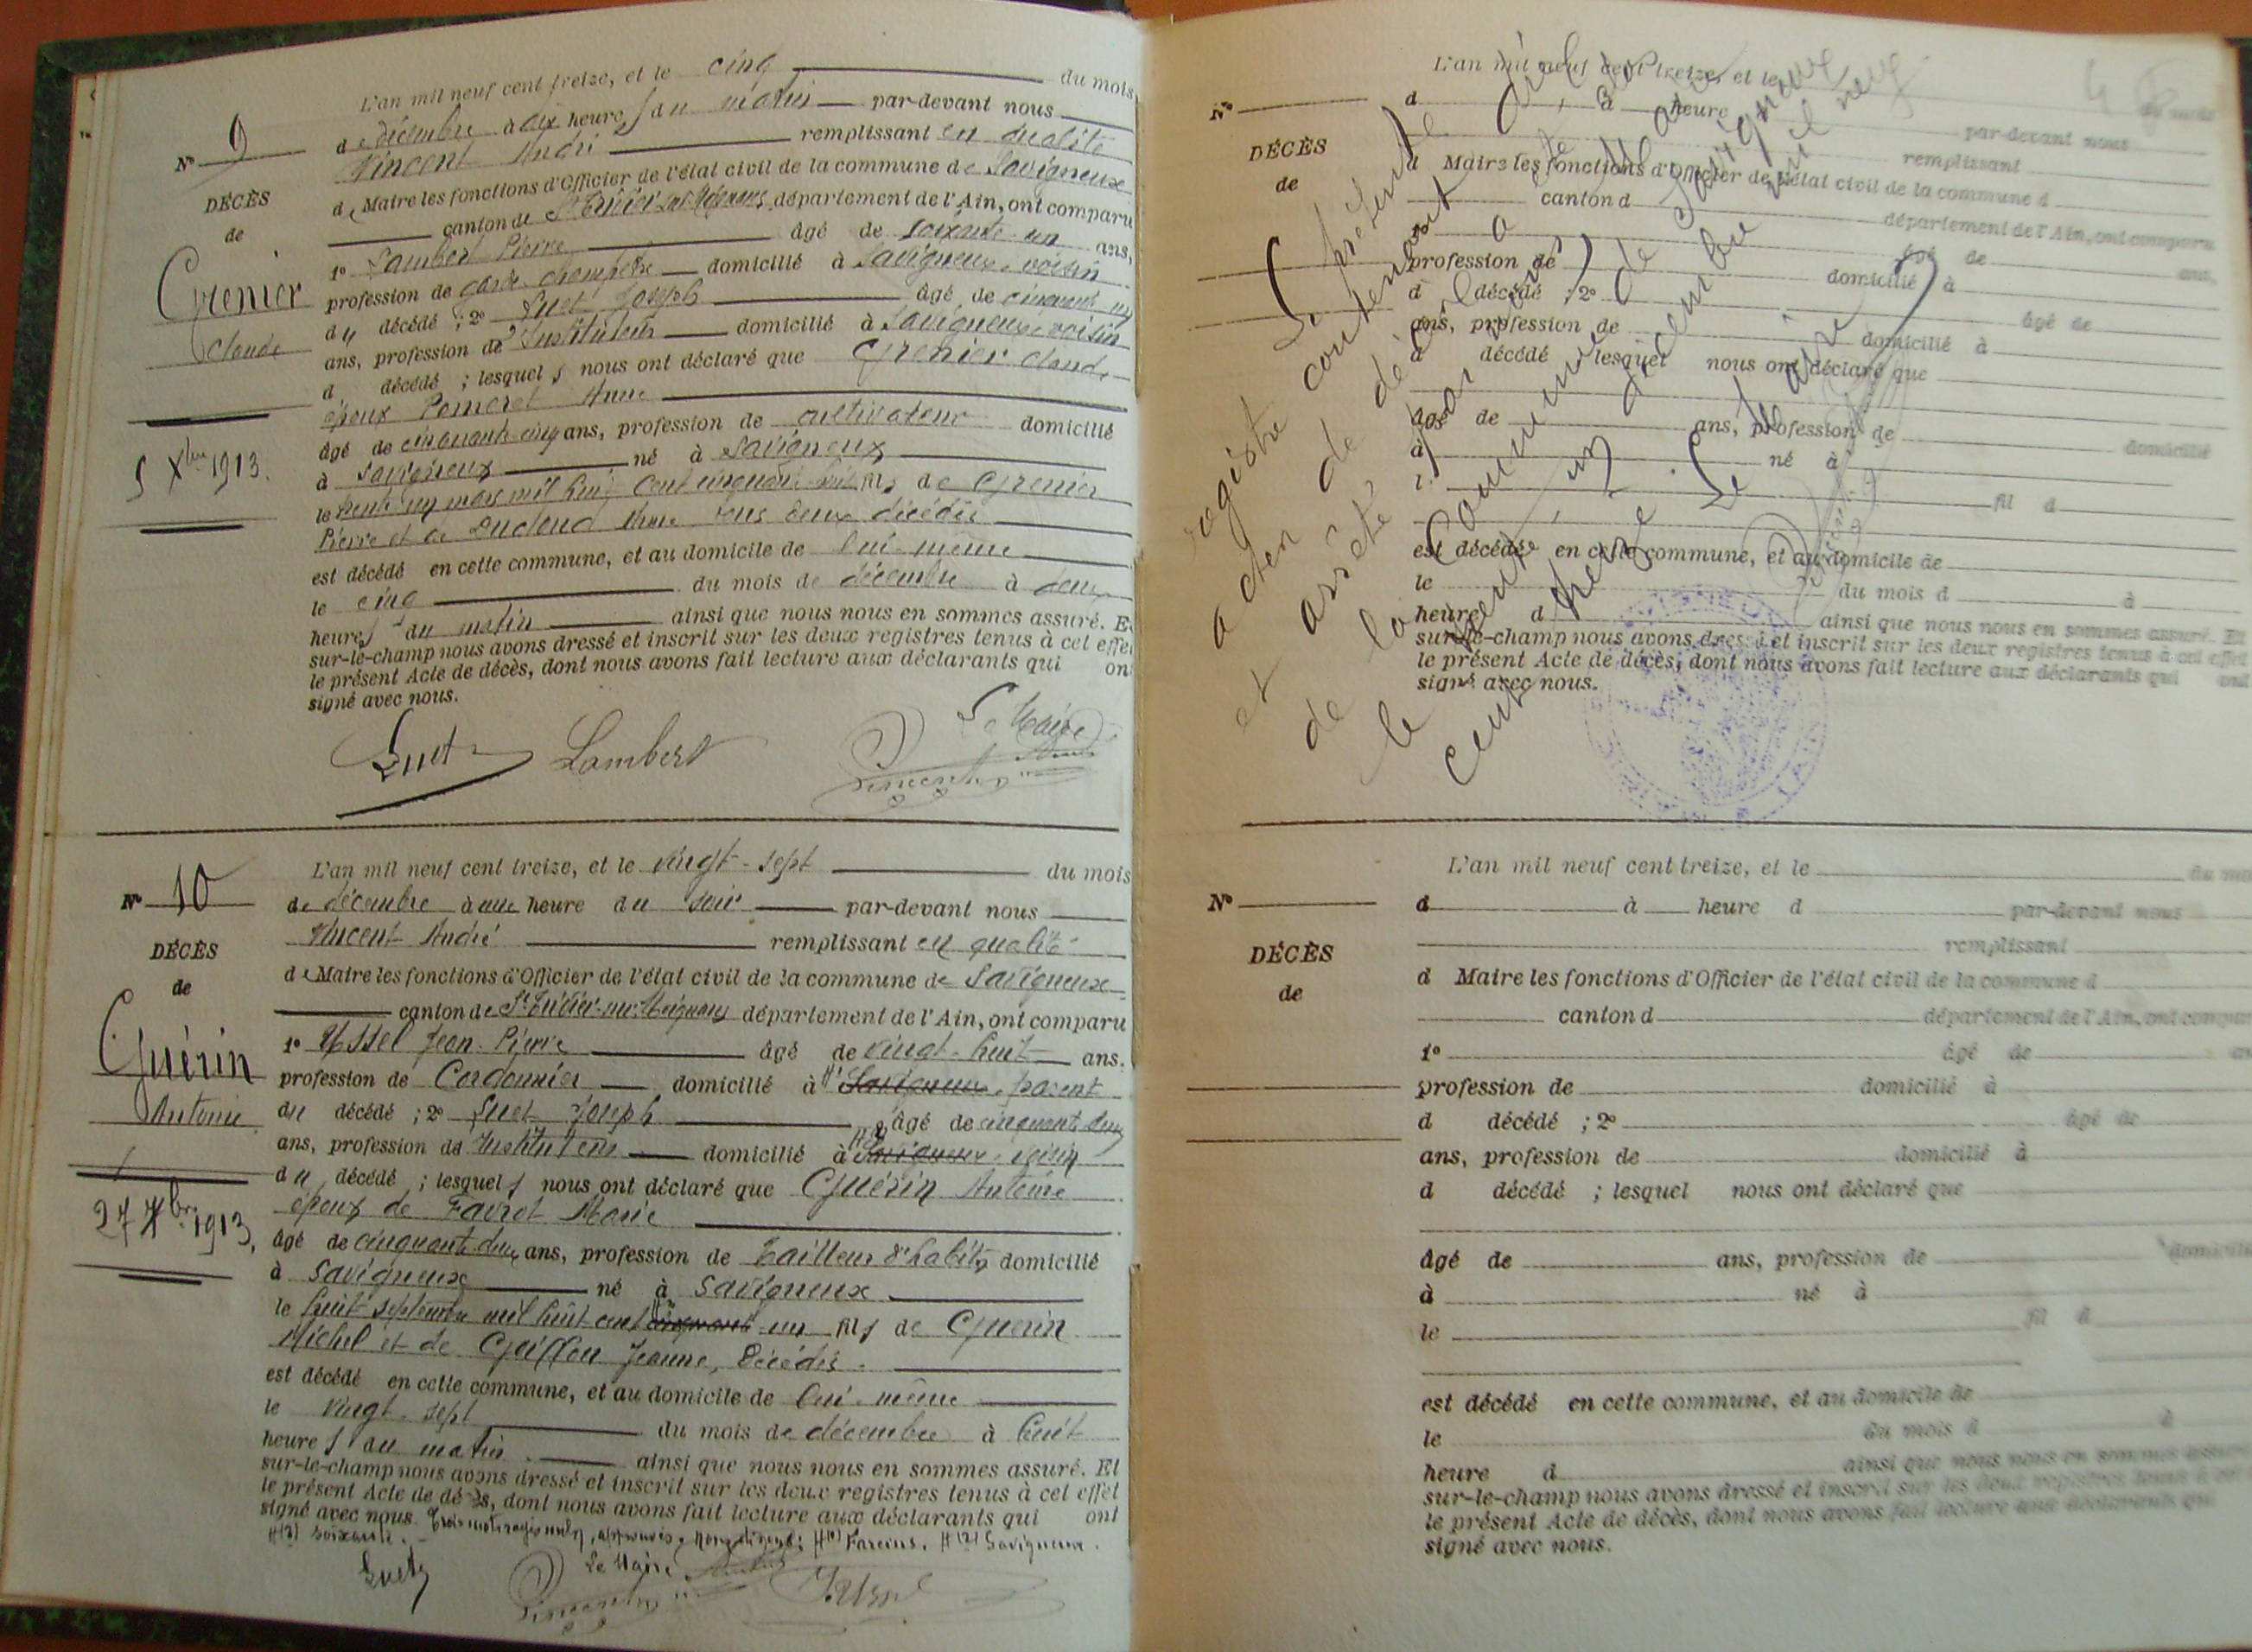 L'an mil neuf cent treize, et le cinq du mois
N° 9
de décembre à dix heures du matin par-devant nous
Vincent André remplissant en qualité
DÉCÈS
de Maire les fonctions d'Officier de l'état civil de la commune de Savigneux
de
canton de St Trivier sur Moignans département de l'Ain, ont comparu
1° Lambert Pierre âgé de soixante un ans,
Grenier
profession de garde champêtre domicilié à Savigneux, voisin
du décédé ; 2° Suet Joseph âgé de cinquante
Claude
ans, profession de Instituteur domicilié à Savigneux, voisin
d décédé ; lesquels nous ont déclaré que Grenier Claude
époux Pomeret Anne
âgé de cinquante cinq ans, profession de cultivateur domicilié
5 Xbre 1913.
à Savigneux né à Savigneux
le trente un mars mil huit cent cinquante huit fils de Grenier
Pierre et de Anne tous deux décédés
est décédé en cette commune, et au domicile de lui-même
le cinq du mois de décembre à deux
heures du matin ainsi que nous nous en sommes assuré. Et
sur-le-champ nous avons dressé et inscrit sur les deux registres tenus à cet effet
le présent Acte de décès, dont nous avons fait lecture aux déclarants qui ont
signé avec nous.
Le Maire
Suet Lambert Vincent
L'an mil neuf cent treize, et le vingt-sept du mois
N° 10
de décembre à une heure du soir par-devant nous
Vincent André remplissant en qualité
DÉCÈS
de Maire les fonctions d'Officier de l'état civil de la commune de Savigneux
de
canton de St Trivier-sur-Moignans département de l'Ain, ont comparu
1° Yssel Jean-Pierre âgé de vingt-huit ans,
Guérin
profession de Cordonnier domicilié à Savigneux, parent
Antoine
du décédé ; 2° Suet Joseph âgé de cinquante deux
ans, profession de Instituteur domicilié à Savigneux, voisin
du décédé ; lesquels nous ont déclaré que Guérin Antoine
époux de Favrot Marie
27 Xbre 1913,
âgé de cinquante deux ans, profession de tailleur d'habits domicilié
à Savigneux né à Savigneux
le huit septembre mil huit cent cinquante un fils de Guérin
Michel et de Jeanne, décédés.
est décédé en cette commune, et au domicile de lui-même
le vingt-sept du mois de décembre à huit
heures du matin ainsi que nous nous en sommes assuré. Et
sur-le-champ nous avons dressé et inscrit sur les deux registres tenus à cet effet
le présent Acte de décès, dont nous avons fait lecture aux déclarants qui ont
signé avec nous. Trois mots rayés nuls, approuvés. (1) Fareins. (2) Savigneux.
(3) soixante.
Suet Le Maire Vincent
L'an mil neuf cent treize, et le du mois
N°
d à heure par-devant nous
DÉCÈS
remplissant
de
d Maire les fonctions d'Officier de l'état civil de la commune d
canton d département de l'Ain, ont comparu
âgé de ans,
profession de domicilié à
d décédé ; 2° âgé de
ans, profession de domicilié à
d décédé lesquel nous ont déclaré que
âgé de ans, profession de domicilié
à né à
l
fil d
est décédé en cette commune, et au domicile de
le du mois d à
heure d ainsi que nous nous en sommes assuré. Et
sur-le-champ nous avons dressé et inscrit sur les deux registres tenus à cet effet
le présent Acte de décès, dont nous avons fait lecture aux déclarants qui ont
signé avec nous.
Le présent
registre contenant
actes de décès a été clos
et arrêté par nous Maire
de la Commune de Savigneux
le trente un décembre mil neuf
cent treize. Le Maire
L'an mil neuf cent treize, et le du mois
N°
d à heure d par-devant nous
remplissant
DÉCÈS
d Maire les fonctions d'Officier de l'état civil de la commune d
de
canton d département de l'Ain, ont comparu
1° âgé de
profession de domicilié à
d décédé ; 2° âgé de
ans, profession de domicilié à
d décédé ; lesquel nous ont déclaré que
âgé de ans, profession de domicilié
à né à
le fil d
est décédé en cette commune, et au domicile de
le du mois d à
heure d ainsi que nous nous en sommes assuré
sur-le-champ nous avons dressé et inscrit sur les deux registres tenus à
le présent Acte de décès, dont nous avons fait lecture aux déclarants qui
signé avec nous.